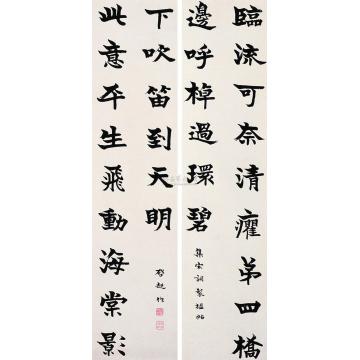 臨流可奈清癯第四橋
邊呼棹過環碧
集宋詞製楹帖
此意平生飛動海棠影
下吹笛到天明
啓超作